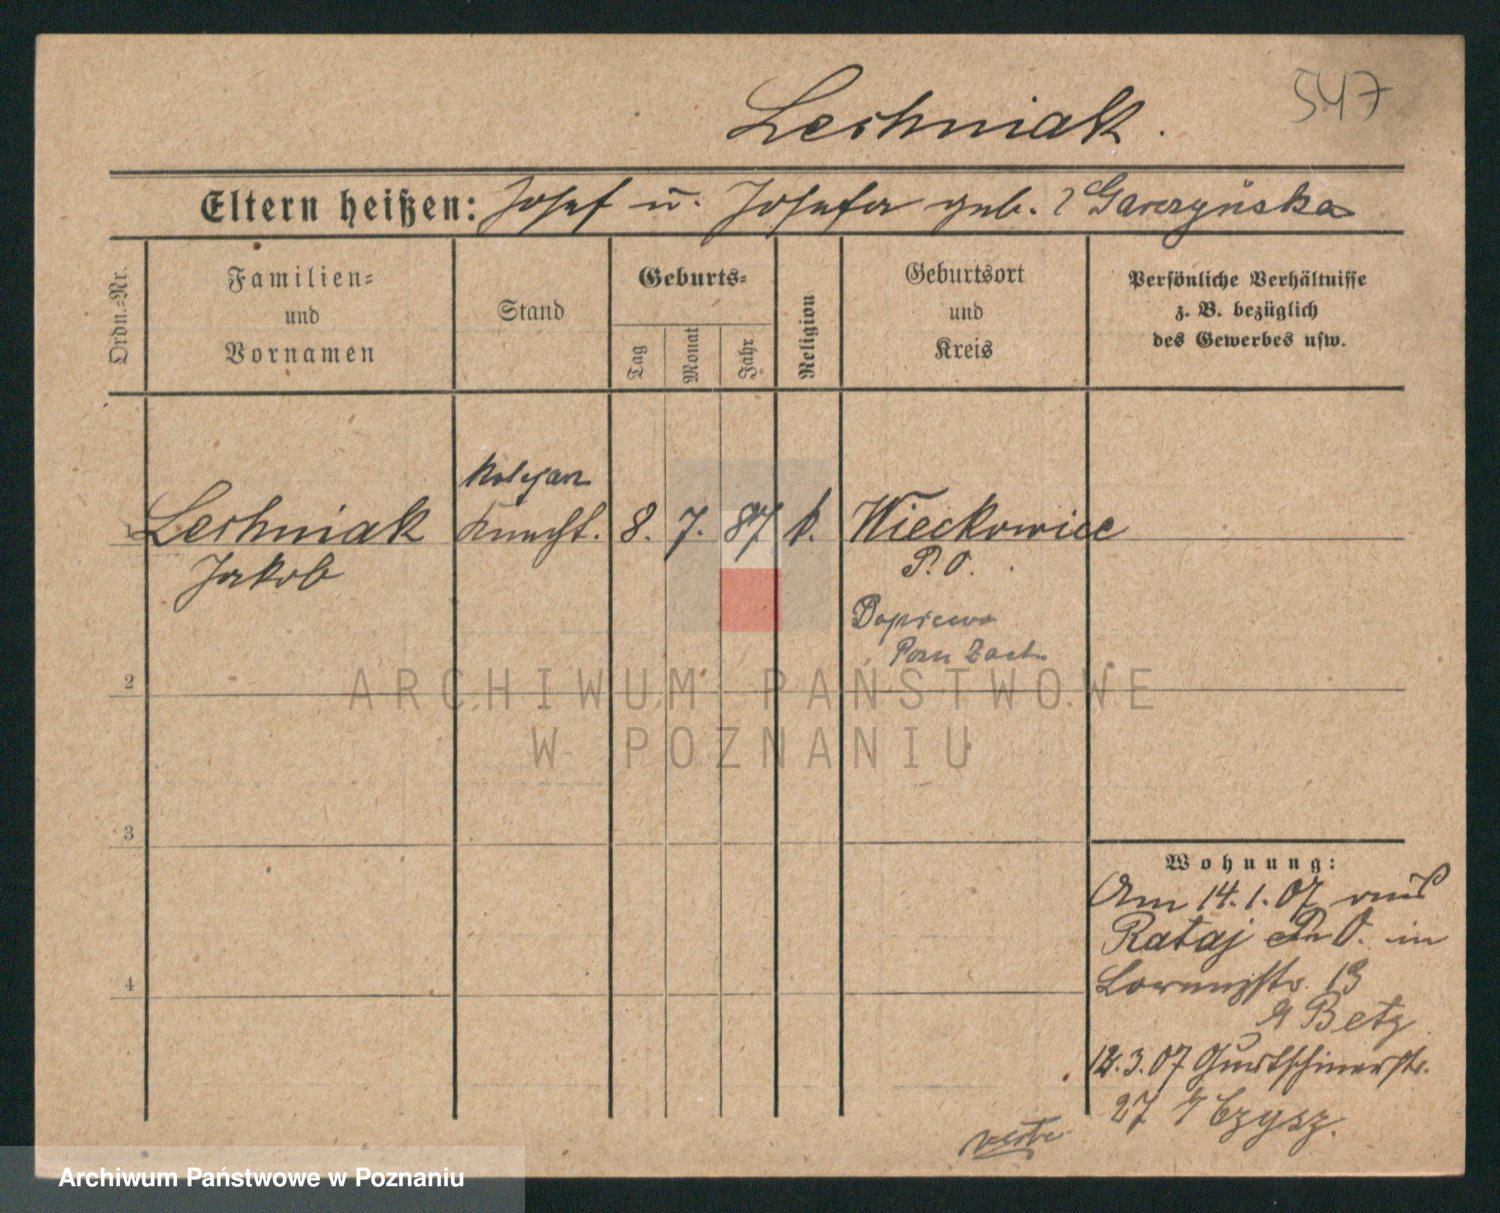 547
Leshniak.
Eltern heißen: Josef u. Josefa geb. Garczyńska
Ordn.-Nr.
Familien-
und
Vornamen
Stand
Geburts-
Tag
Monat
Jahr
Religion
Geburtsort
und
Kreis
Persönliche Verhältnisse
z. B. bezüglich
des Gewerbes usw.
1 Leshniak Knecht. 8. 7. 87 k. Wieckowice
Jakob P. O.
Dopiewo
Posn
2
ARCHIWUM PAŃSTWOWE
W POZNANIU
3
4
Wohnung:
Am 14.1.07 aus
Rataj P. O. in
13
Betz
12.3.07 Gurtschinerstr.
27 Czysz.
verte
Archiwum Państwowe w Poznaniu